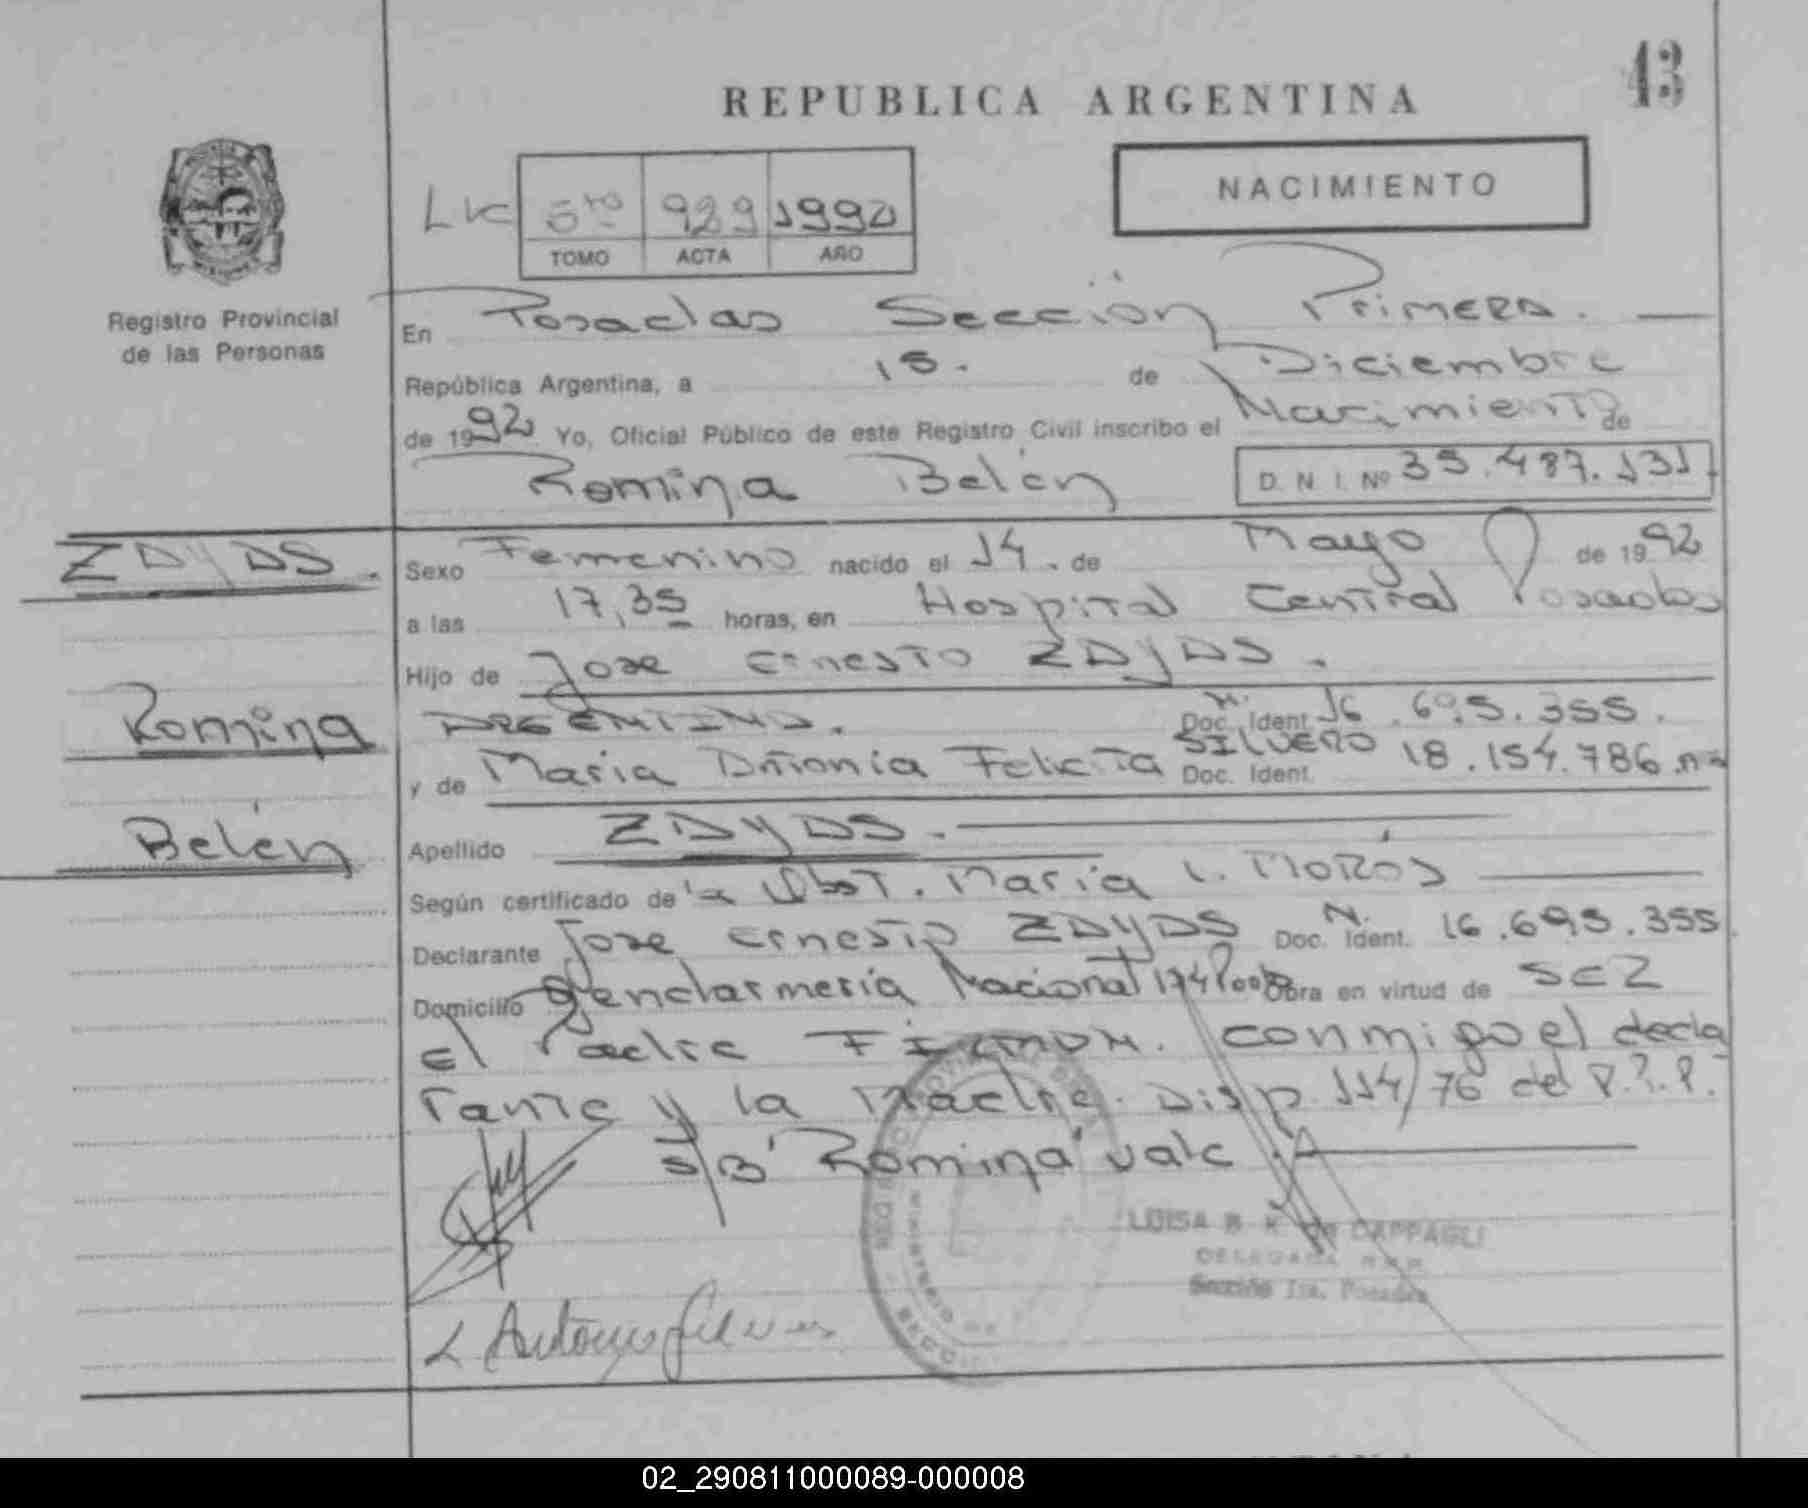 43
REPUBLICA ARGENTINA
NACIMIENTO
5to 929 1992
TOMO ACTA AÑO
Registro Provincial
de las Personas
En Posadas Sección Primera.
República Argentina, a 15. de Diciembre
de 1992 Yo, Oficial Público de este Registro Civil inscribo el Nacimiento de
Romina Belén D. N. I. Nº 35.487.131
ZDYDS.
Romina
Belén
Sexo Femenino nacido el 14. de Mayo de 1992
a las 17,35 horas, en Hospital Central Posadas
Hijo de Jose Ernesto ZDYDS.
ARGENTINO. Doc. Ident. N. 16.695.355.
y de Maria Antonia Felicita SILVERO Doc. Ident. 18.154.786
Apellido ZDYDS.
Según certificado de la Obst. Maria L. Morós
Declarante Jose Ernesto ZDYDS Doc. Ident. N. 16.695.355
Domicilio Gendarmeria Nacional 174 Obra en virtud de SEZ
el Padre FIRMAN. conmigo el decla
rante y la Madre. Disp. 114/76 del R.P.P.
S/B "Romina" vale
LUISA B K DE CAPPAGLI
DELEGADA R.P.P.
Sección 1ra. Posadas
02_290811000089-000008